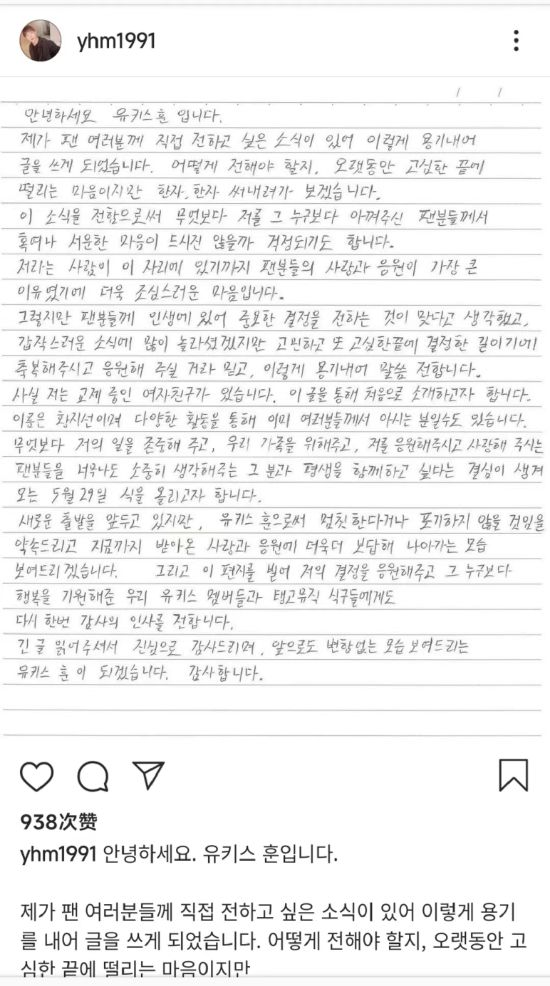 yhm1991
/ /
안녕하세요 유키스 훈 입니다.
제가 팬 여러분께 직접 전하고 싶은 소식이 있어 이렇게 용기내어
글을 쓰게 되었습니다. 어떻게 전해야 할지, 오랫동안 고심한 끝에
떨리는 마음이지만 한자, 한자 써내려가 보겠습니다.
이 소식을 전함으로써 무엇보다 저를 그 누구보다 아껴주신 팬분들께서
혹여나 서운한 마음이 드시진 않을까 걱정되기도 합니다.
저라는 사람이 이 자리에 있기까지 팬분들의 사랑과 응원이 가장 큰
이유였기에 더욱 조심스러운 마음입니다.
그렇지만 팬분들께 인생에 있어 중요한 결정을 전하는 것이 맞다고 생각했고,
갑작스러운 소식에 많이 놀라셨겠지만 고민하고 또 고심한끝에 결정한 길이기에
축복해주시고 응원해 주실 거라 믿고, 이렇게 용기내어 말씀 전합니다.
사실 저는 교제 중인 여자친구가 있습니다. 이 글을 통해 처음으로 소개하고자 합니다.
이름은 황지선이며 다양한 활동을 통해 이미 여러분들께서 아시는 분일수도 있습니다.
무엇보다 저의 일을 존중해 주고, 우리 가족을 위해주고, 저를 응원해주시고 사랑해 주시는
팬분들을 너무나도 소중히 생각해주는 그 분과 평생을 함께하고 싶다는 결심이 생겨
오는 5월 29일 식을 올리고자 합니다.
새로운 출발을 앞두고 있지만, 유키스 훈으로써 멈칫한다거나 포기하지 않을 것임을
약속드리고 지금까지 받아온 사랑과 응원에 더욱더 보답해 나아가는 모습
보여드리겠습니다. 그리고 이 편지를 빌어 저의 결정을 응원해주고 그 누구보다
행복을 기원해준 우리 유키스 멤버들과 탱고뮤직 식구들에게도
다시 한번 감사의 인사를 전합니다.
긴 글 읽어주셔서 진심으로 감사드리며, 앞으로도 변함없는 모습 보여드리는
유키스 훈 이 되겠습니다. 감사합니다.
938次赞
yhm1991 안녕하세요. 유키스 훈입니다.
제가 팬 여러분들께 직접 전하고 싶은 소식이 있어 이렇게 용기
를 내어 글을 쓰게 되었습니다. 어떻게 전해야 할지, 오랫동안 고
심한 끝에 떨리는 마음이지만